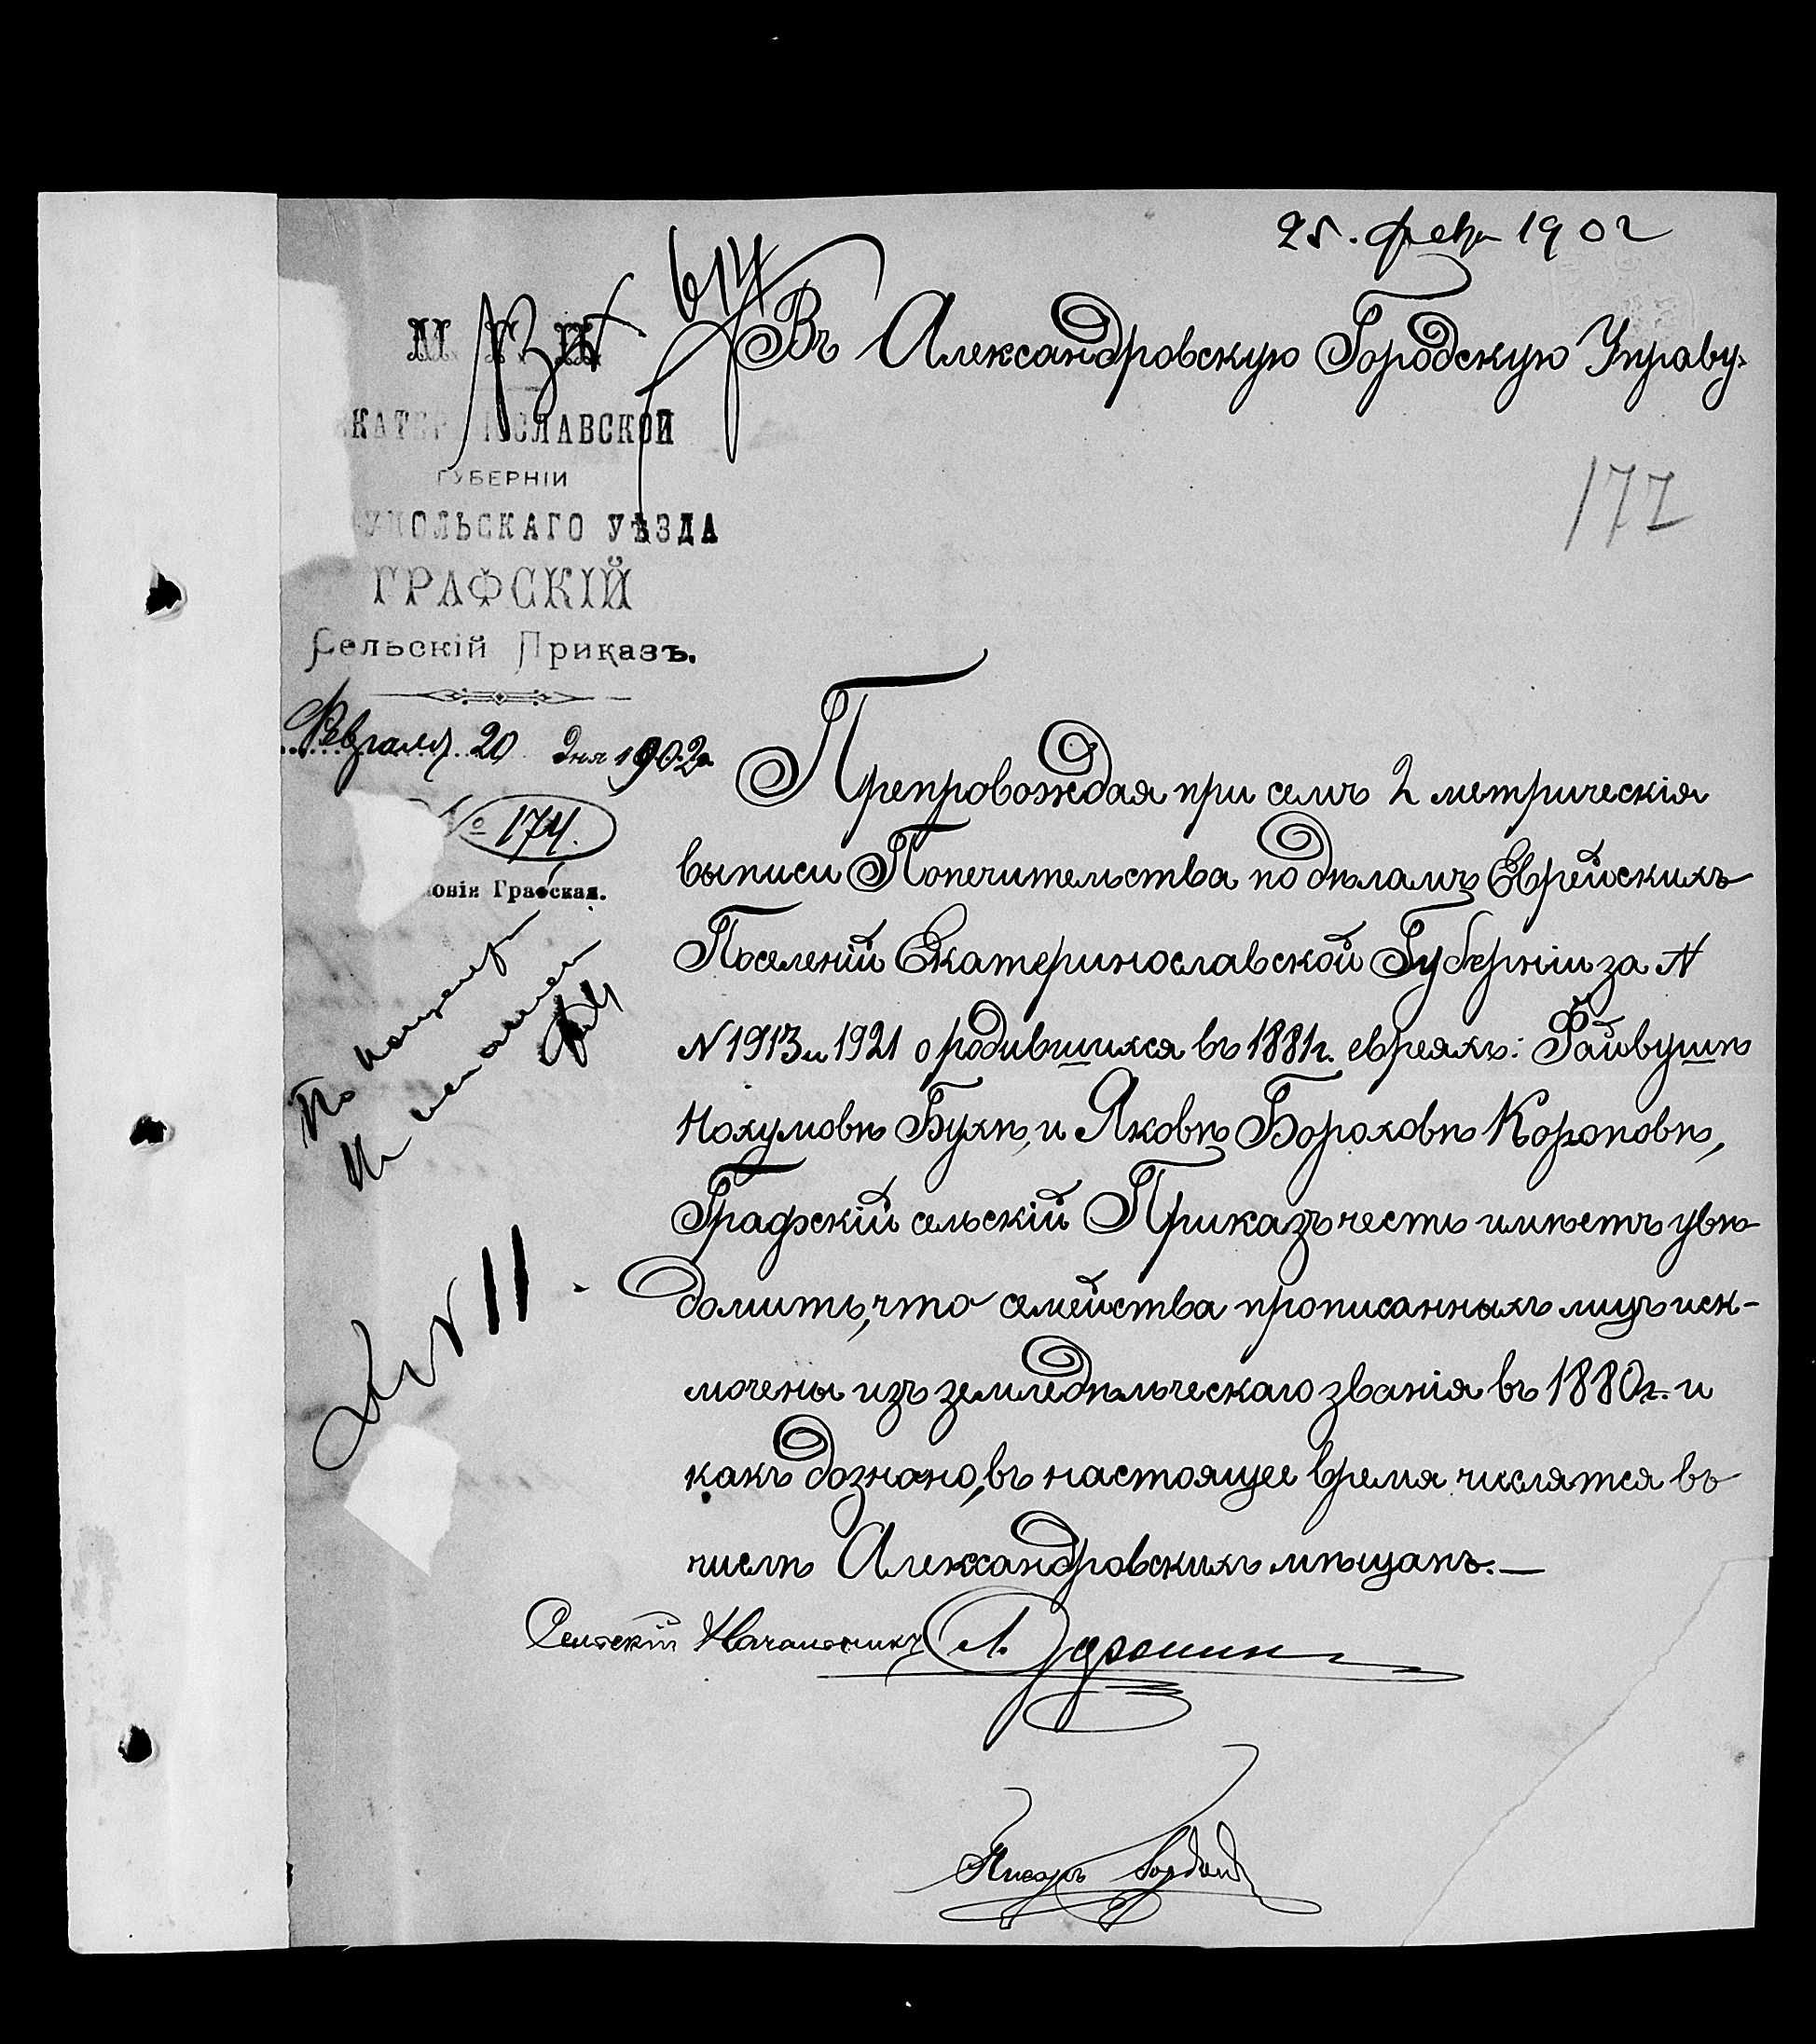 25. февр 1902
614
Въ Александровскую Городскую Управу.
М. Г. И.
КАТЕР НОСЛАВСКОЙ
ГУБЕРНІИ
УПОЛЬСКАГО УѢЗДА
172
ГРАФСКІЙ
Сельскій Приказъ.
Февраля 20 дня 1902 г.
№ 174.
лонія Графская.
Препровождая при семъ 2 метрическія
выписи Попечительства по дѣламъ Еврейскихъ
Поселеній Екатеринославской Губерніи за №
№ 1913 и 1921 о родившихся въ 1881 г. евреяхъ: Файвушѣ
Нохумовѣ Бухѣ, и Яковѣ Бороховѣ Короповѣ,
Графскій сельскій Приказъ честь имѣетъ увѣ-
домить, что семейства прописанныхъ лицъ иск-
лючены изъ земледѣльческаго званія въ 1880 г. и
какъ дознано, въ настоящее время числятся въ
числѣ Александровскихъ мѣщанъ.—
По
11
Сельскій Начальникъ Л.
Писарь